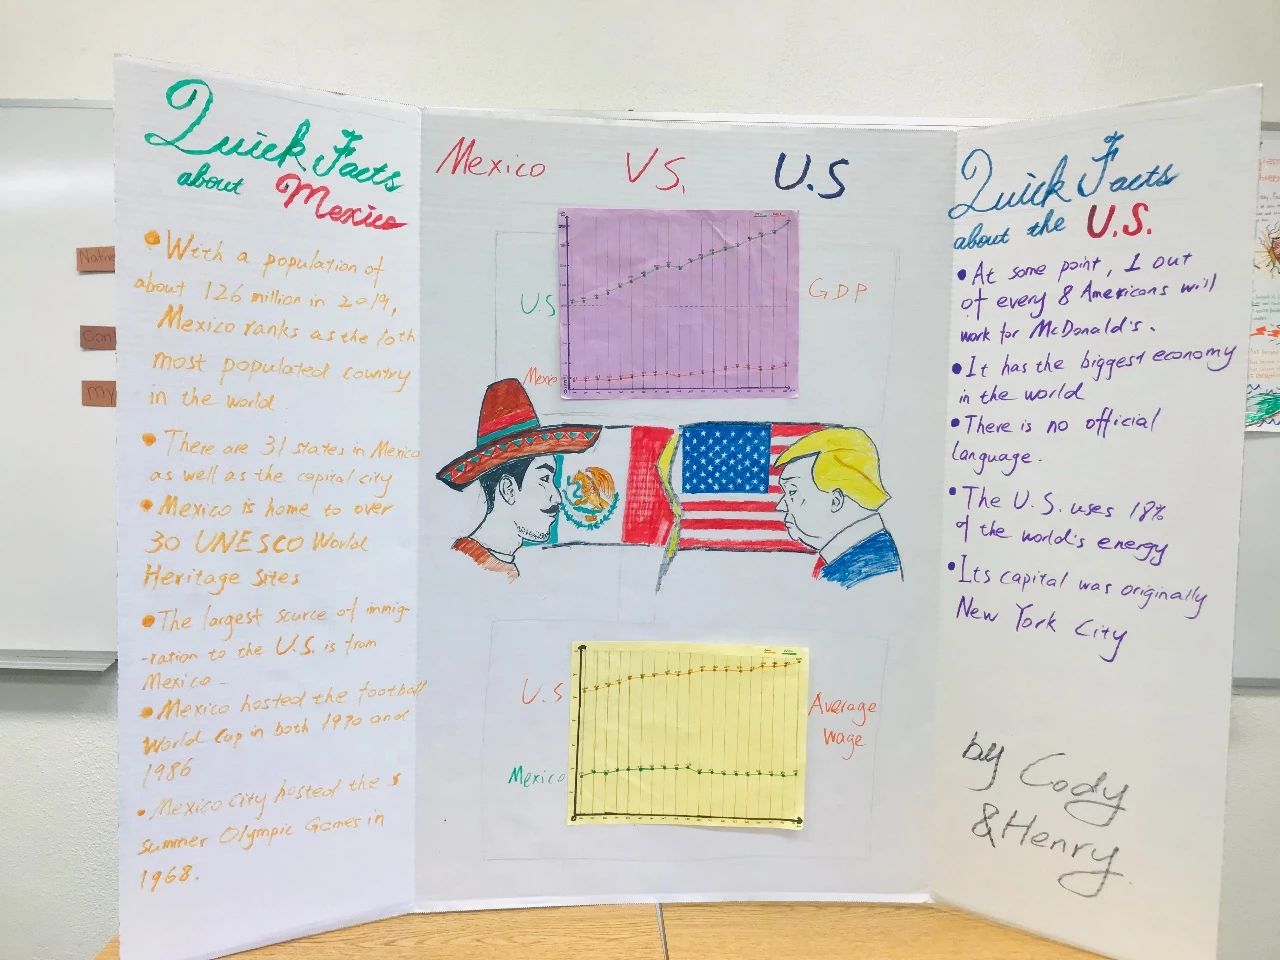 Quick Facts
about Mexico
• With a population of
about 126 million in 2019,
Mexico ranks as the 10th
most populated country
in the world.
• There are 31 states in Mexico
as well as the capital city
• Mexico is home to over
30 UNESCO World
Heritage Sites
• The largest source of immig-
-ration to the U.S. is from
Mexico.
• Mexico hosted the football
World Cup in both 1970 and
1986
• Mexico City hosted the s
summer Olympic Games in
1968.
Mexico VS. U.S
U.S
GDP
Mexico
U.S
Average
wage
Mexico
Quick Facts
about the U.S.
• At some point, 1 out
of every 8 Americans will
work for McDonald's.
• It has the biggest economy
in the world
• There is no official
language.
• The U.S. uses 18%
of the world's energy
• Its capital was originally
New York City
by Cody
& Henry
Native